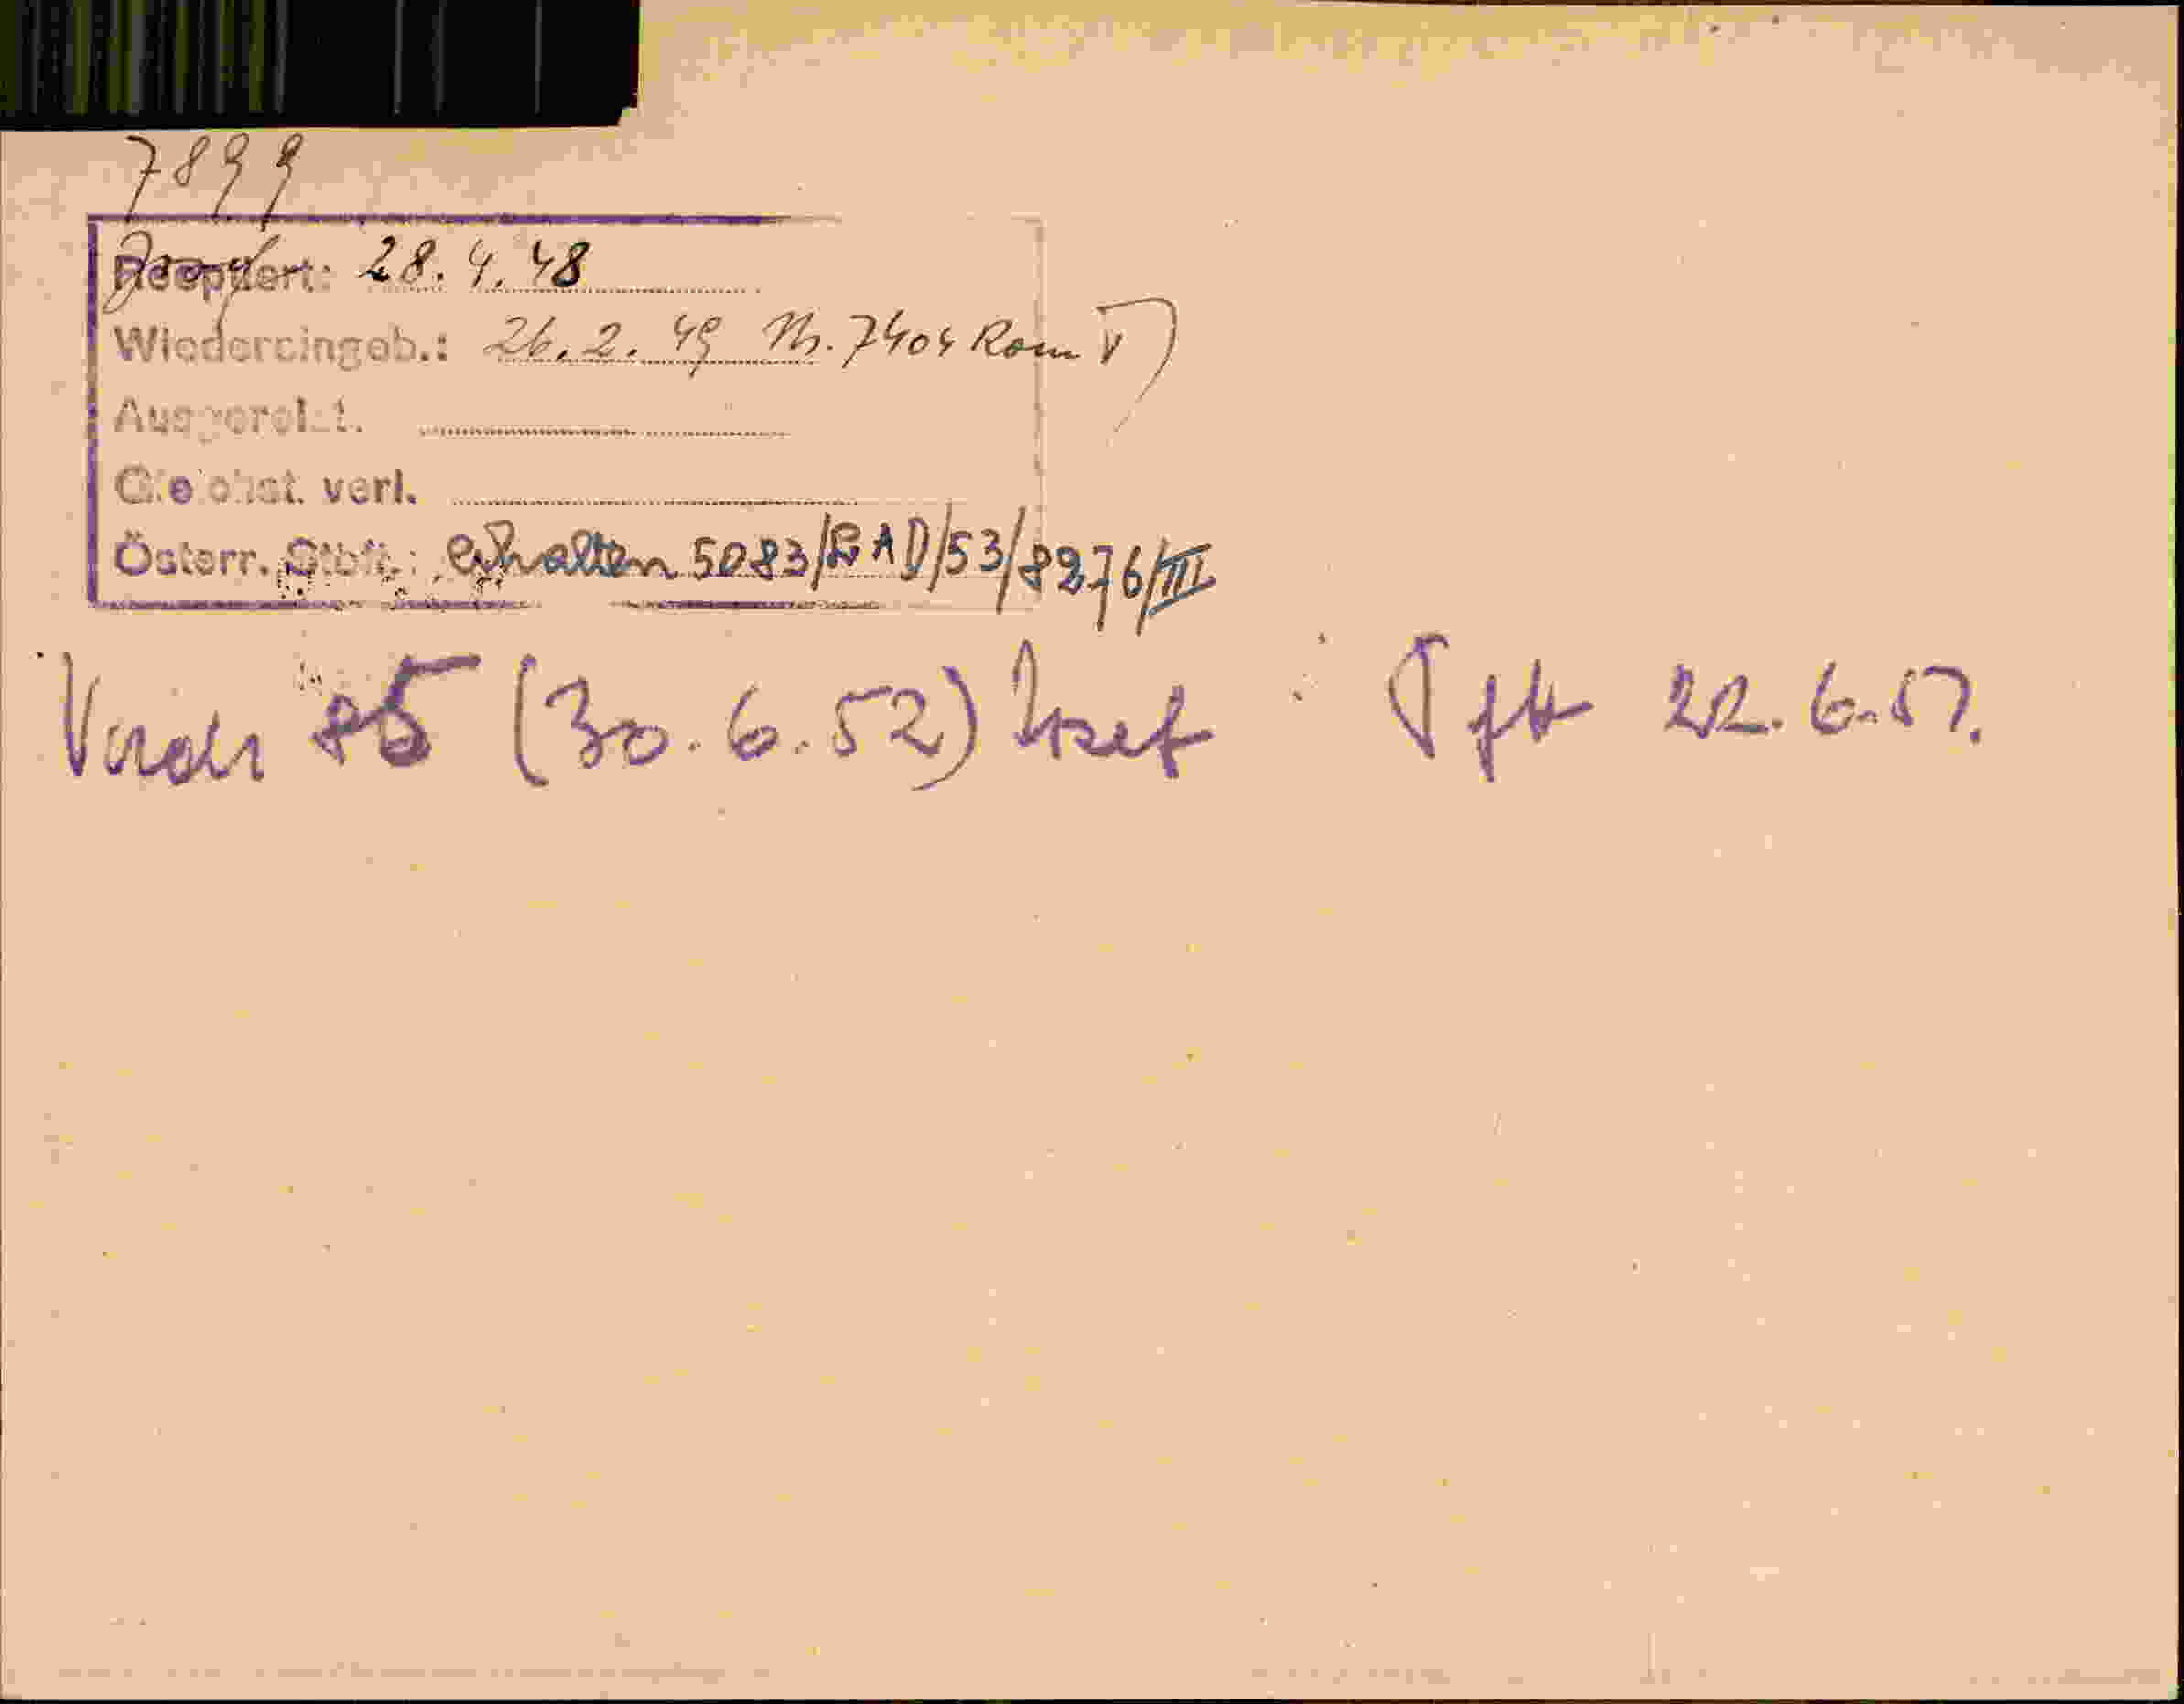 7899
Reoptiert: 28.4.48
Wiedereingeb.: 26.2.49 Nr. 7404 Rom V
Ausgereist.
Gleichst. verl.
Österr. Stbft.: erhalten 5083/LAD/53/8276/III
(30.6.52) 22.6.57.